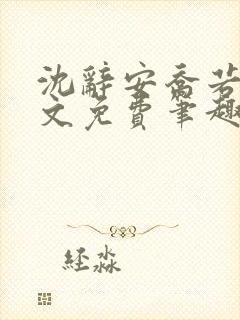 沈辭安喬若
文免費筆趣
经淼